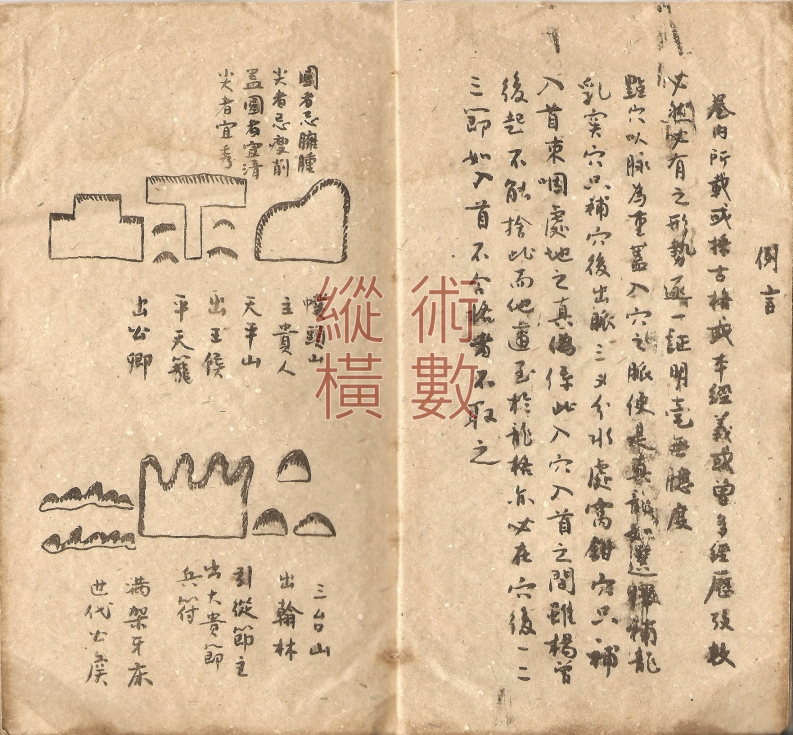 例言
卷內所載或據古格或本經義或曾多經歷弦敢
必然必有之形勢逐一証明毫無臆度
點穴以脉為重蓋入穴之脈便是真龍如選擇補龍
乳突穴只補穴後出脈三义分水處窩鉗穴只補
入首束咽處地之真偽係此入穴入首之間雖楊曾
後起不能捨此而他重至於龍格亦必在穴後一二
三節如入首不合格者不取之
圓者忌臃腫
尖者忌瘦削
蓋圓者宜清
尖者宜秀
幞頭山
主貴人
天平山
出王侯
平天籠
出公卿
三台山
出翰林
引從節主
出大貴節
兵符
滿架牙床
世代公侯
術數
縱橫